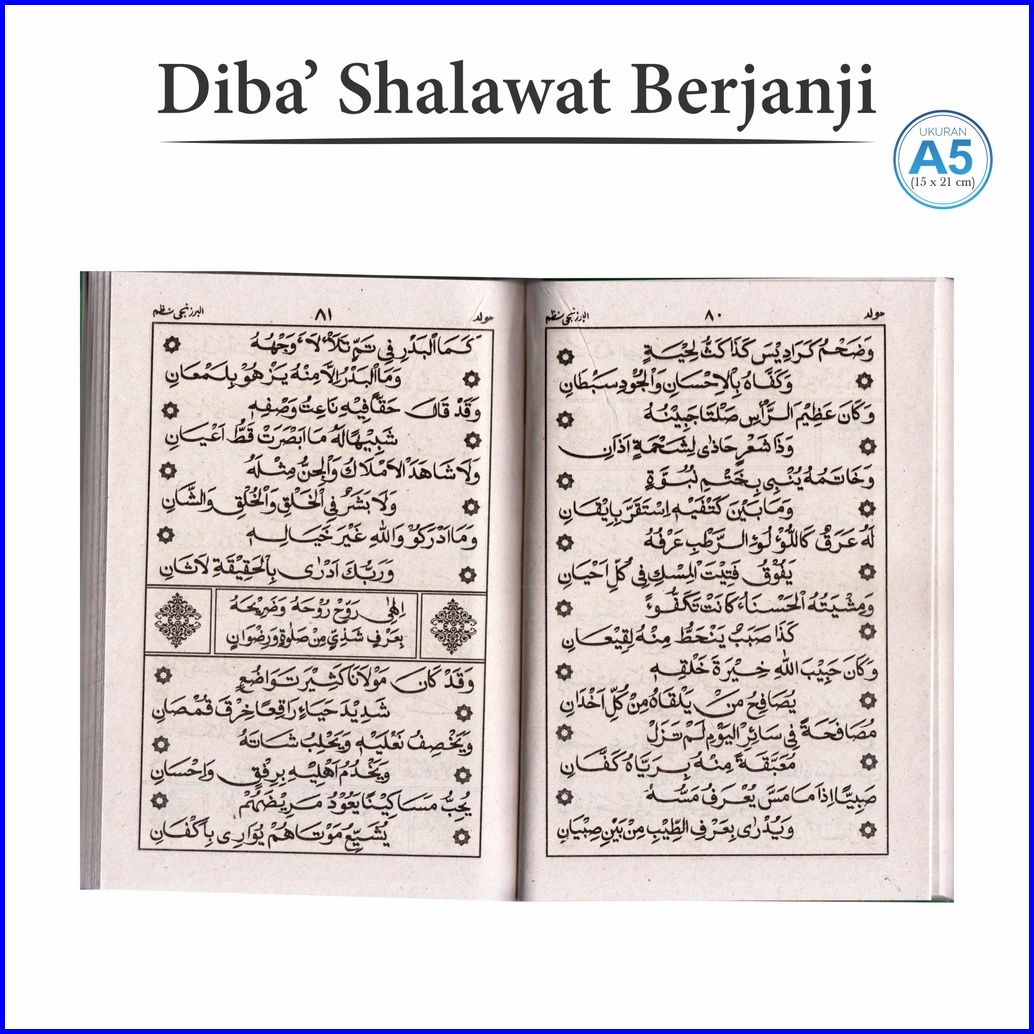 Diba’ Shalawat Berjanji
UKURAN
A5
(15 x 21 cm)
مولد ٨٠ البرزنجى نظم
وَضَخْمُ كَرَادِيْسَ كَذَا كَثُّ لِحْيَةٍ
وَكَفَّاهُ بِالْاِحْسَانِ وَالْجُوْدِ سَبْطَانِ
وَكَانَ عَظِيْمَ الرَّأْسِ صَلْتًا جَبِيْنُهُ
وَذَا شَعْرٍ حَاذٰى لِشَحْمَةِ اٰذَانِ
وَخَاتَمُهُ يُنْبِى بِخَتْمِ نُبُوَّةٍ
وَمَا بَيْنَ كَتْفَيْهِ اسْتَقَرَّ بِاِيْقَانِ
لَهُ عَرَقٌ كَاللُّؤْلُوءِ الرَّطْبِ عَرْفُهُ
يَفُوْقُ فَتِيْتَ الْمِسْكِ فِى كُلِّ اَحْيَانِ
وَمِشْيَتُهُ الْحَسْنَاءُ كَانَتْ تَكَفُّوءً
كَذَا صَبَبٌ يَنْحَطُّ مِنْهُ لِقِيْعَانِ
وَكَانَ حَبِيْبَ اللهِ خِيْرَةَ خَلْقِهِ
يُصَافِحُ مَنْ يَلْقَاهُ مِنْ كُلِّ اَخْدَانِ
مُصَافَحَةً فِى سَائِرِ الْيَوْمِ لَمْ تَزَلْ
مُعَبَّقَةً مِنْهُ بِرَيَّاهُ كَفَّانِ
صَبِيًّا اِذَا مَا مَسَّ يُعْرَفُ مَسُّهُ
وَيُدْرٰى بِعَرْفِ الطِّيْبِ مِنْ بَيْنِ صِبْيَانِ
مولد ٨١ البرزنجى نظم
كَمَا الْبَدْرِ فِى تَمٍّ تَلَأْلَأَ وَجْهُهُ
وَمَا الْبَدْرُ اِلَّا مِنْهُ يَزْهُوْ بِلَمْعَانِ
وَقَدْ قَالَ حَقًّا فِيْهِ نَاعِتُ وَصْفِهِ
شَبِيْهًا لَهُ مَا اَبْصَرَتْ قَطُّ اَعْيَانِ
وَلَا شَاهَدَ الْاَمْلَاكُ وَالْجِنُّ مِثْلَهُ
وَلَا بَشَرٌ فِى الْخَلْقِ وَالْخُلْقِ وَالشَّانِ
وَمَا اَدْرَكُوْ وَاللهِ غَيْرَ خَيَالِهِ
وَرَبُّكَ اَدْرٰى بِالْحَقِيْقَةِ لَاثَانِ
اِلٰهِى رَوِّحْ رُوْحَهُ وَضَرِيْحَهُ
بِعَرْفٍ شَذِيٍّ مِنْ صَلٰوةٍ وَرِضْوَانِ
وَقَدْ كَانَ مَوْلَانَا كَثِيْرَ تَوَاضُعٍ
شَدِيْدَ حَيَاءٍ رَاقِعًا خِرْقَ قُمْصَانِ
وَيَخْصِفُ نَعْلَيْهِ وَيَحْلِبُ شَاتَهُ
وَيَخْدُمُ اَهْلِيْهِ بِرِفْقٍ وَاِحْسَانِ
يُحِبُّ مَسَاكِيْنًا يَعُوْدُ مَرِيْضَهُمْ
يُشَيِّعُ مَوْتَاهُمْ يُوَارِى بِاَكْفَانِ